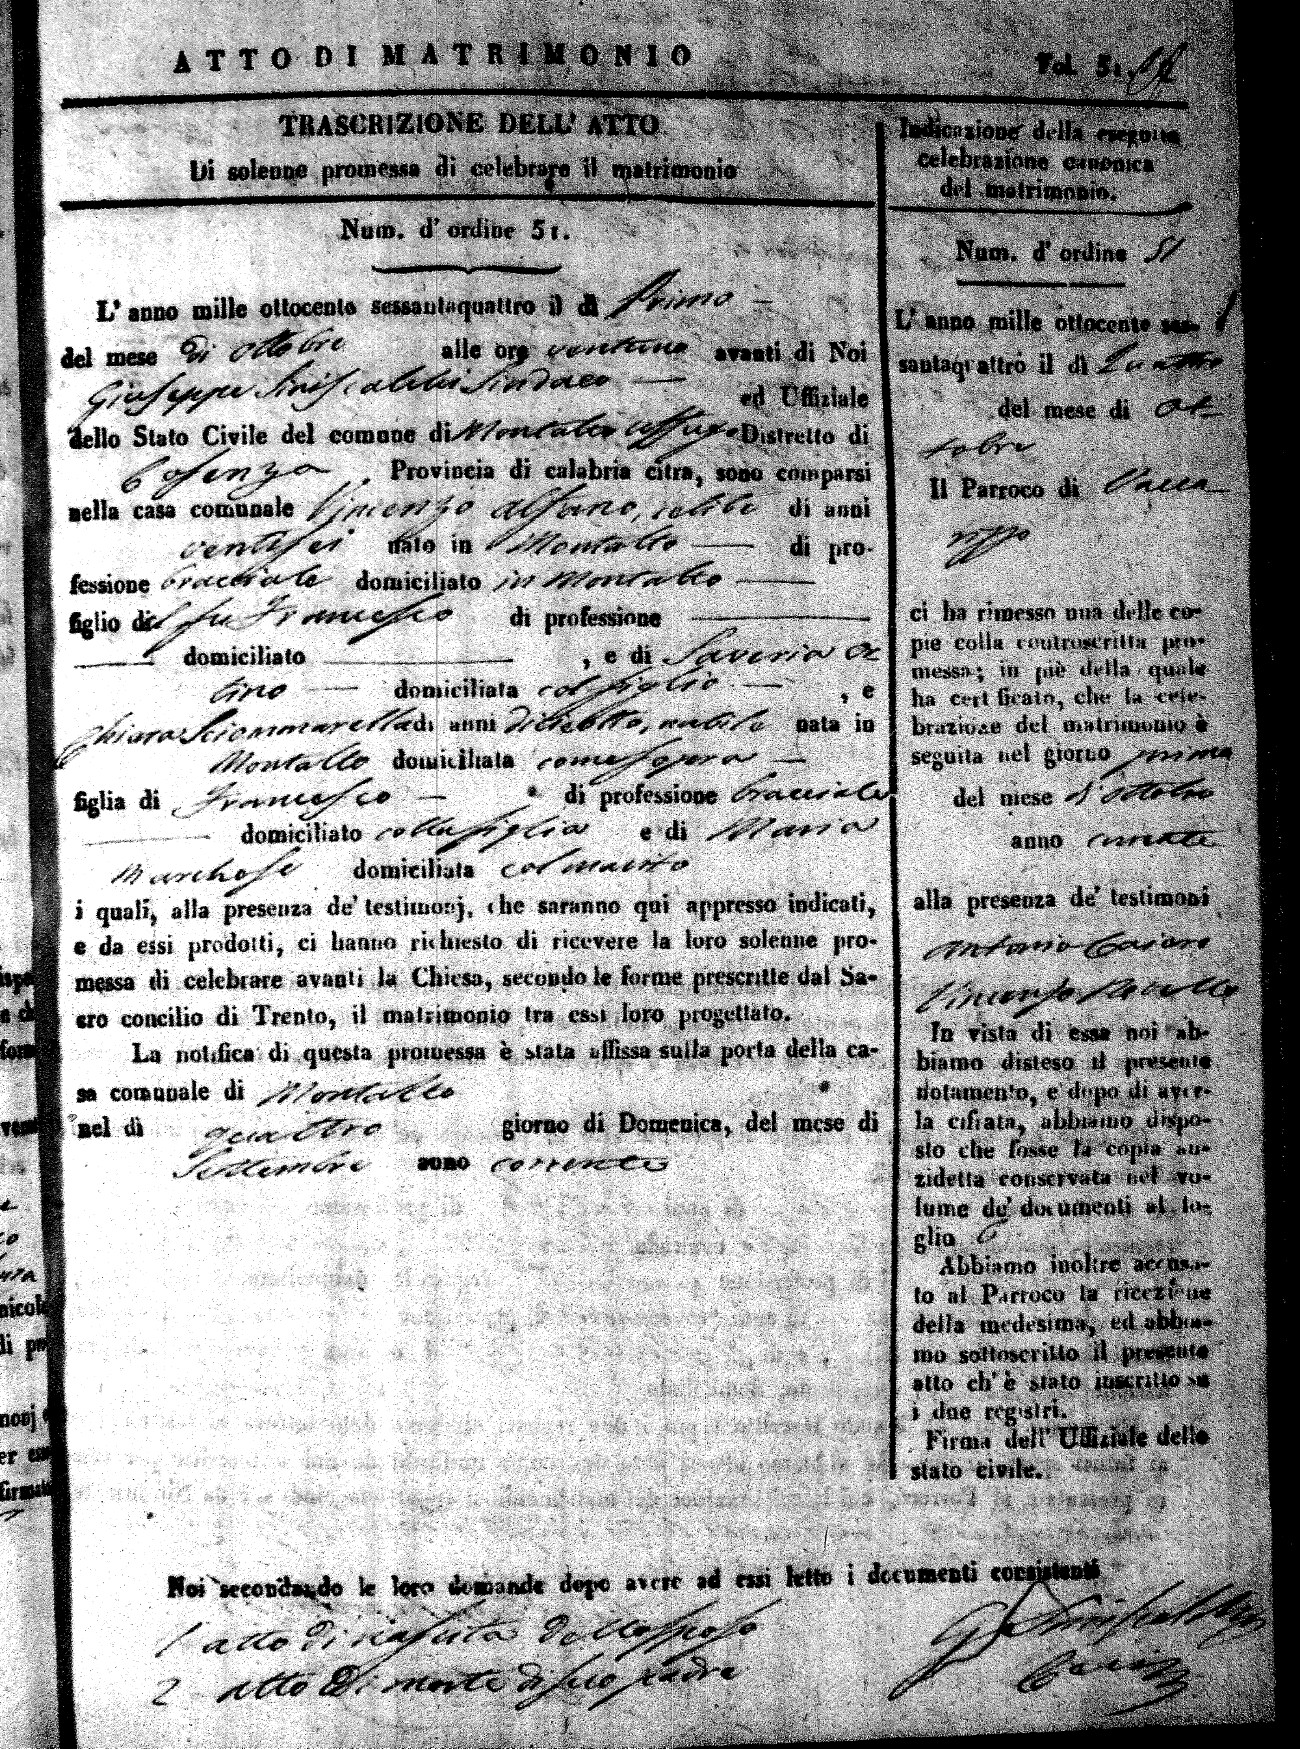 ATTO DI MATRIMONIO
Fol. 51
TRASCRIZIONE DELL' ATTO
Di solenne promessa di celebrare il matrimonio
Num. d' ordine 51.
L' anno mille ottocento sessantaquattro il dì Primo
del mese di ottobre alle ore ventuno avanti di Noi
Giuseppe Siniscalchi Sindaco ed Uffiziale
dello Stato Civile del comune di Montalto uffugo Distretto di
Cosenza. Provincia di calabria citra, sono comparsi
nella casa comunale Vincenzo Alfano, celibe di anni
ventisei nato in Montalto di pro-
fessione bracciale domiciliato in Montalto
figlio del fu Francesco di professione
domiciliato , e di Saveria
domiciliata col figlio , e
Chiara Sciammarella di anni diciotto, nubile nata in
Montalto domiciliata come sopra
figlia di Francesco di professione bracciale
domiciliato colla figlia e di Maria
Marchese domiciliata col marito
i quali, alla presenza de' testimonj, che saranno qui appresso indicati,
e da essi prodotti, ci hanno richiesto di ricevere la loro solenne pro-
messa di celebrare avanti la Chiesa, secondo le forme prescritte dal Sa-
cro concilio di Trento, il matrimonio tra essi loro progettato.
La notifica di questa promessa è stata affissa sulla porta della ca-
sa comunale di Montalto
nel dì quattro giorno di Domenica, del mese di
Settembre anno corrente
Indicazione della eseguita
celebrazione canonica
del matrimonio.
Num. d' ordine 51
L' anno mille ottocento ses-
santaquattro il dì Quattro
del mese di ot-
tobre
Il Parroco di Vacca
rizzo
ci ha rimesso una delle co-
pie colla controscritta pro-
messa; in piè della quale
ha certificato, che la cele-
brazione del matrimonio è
seguita nel giorno primo
del mese d'ottobre
anno corrente
alla presenza de' testimoni
Antonio
Vincenzo
In vista di essa noi ab-
biamo disteso il presente
notamento, e dopo di aver-
la cifrata, abbiamo dispo-
sto che fosse la copia an-
zidetta conservata nel vo-
lume de' documenti al fo-
glio 6
Abbiamo inoltre accusa-
to al Parroco la ricezione
della medesima, ed abbia-
mo sottoscritto il presente
atto ch' è stato inscritto su
i due registri.
Firma dell' Uffiziale dello
stato civile.
Noi secondando le loro domande dopo avere ad essi letto i documenti consistenti
1 atto di nascita dello sposo
2 atto di morte di suo padre
G Siniscalchi